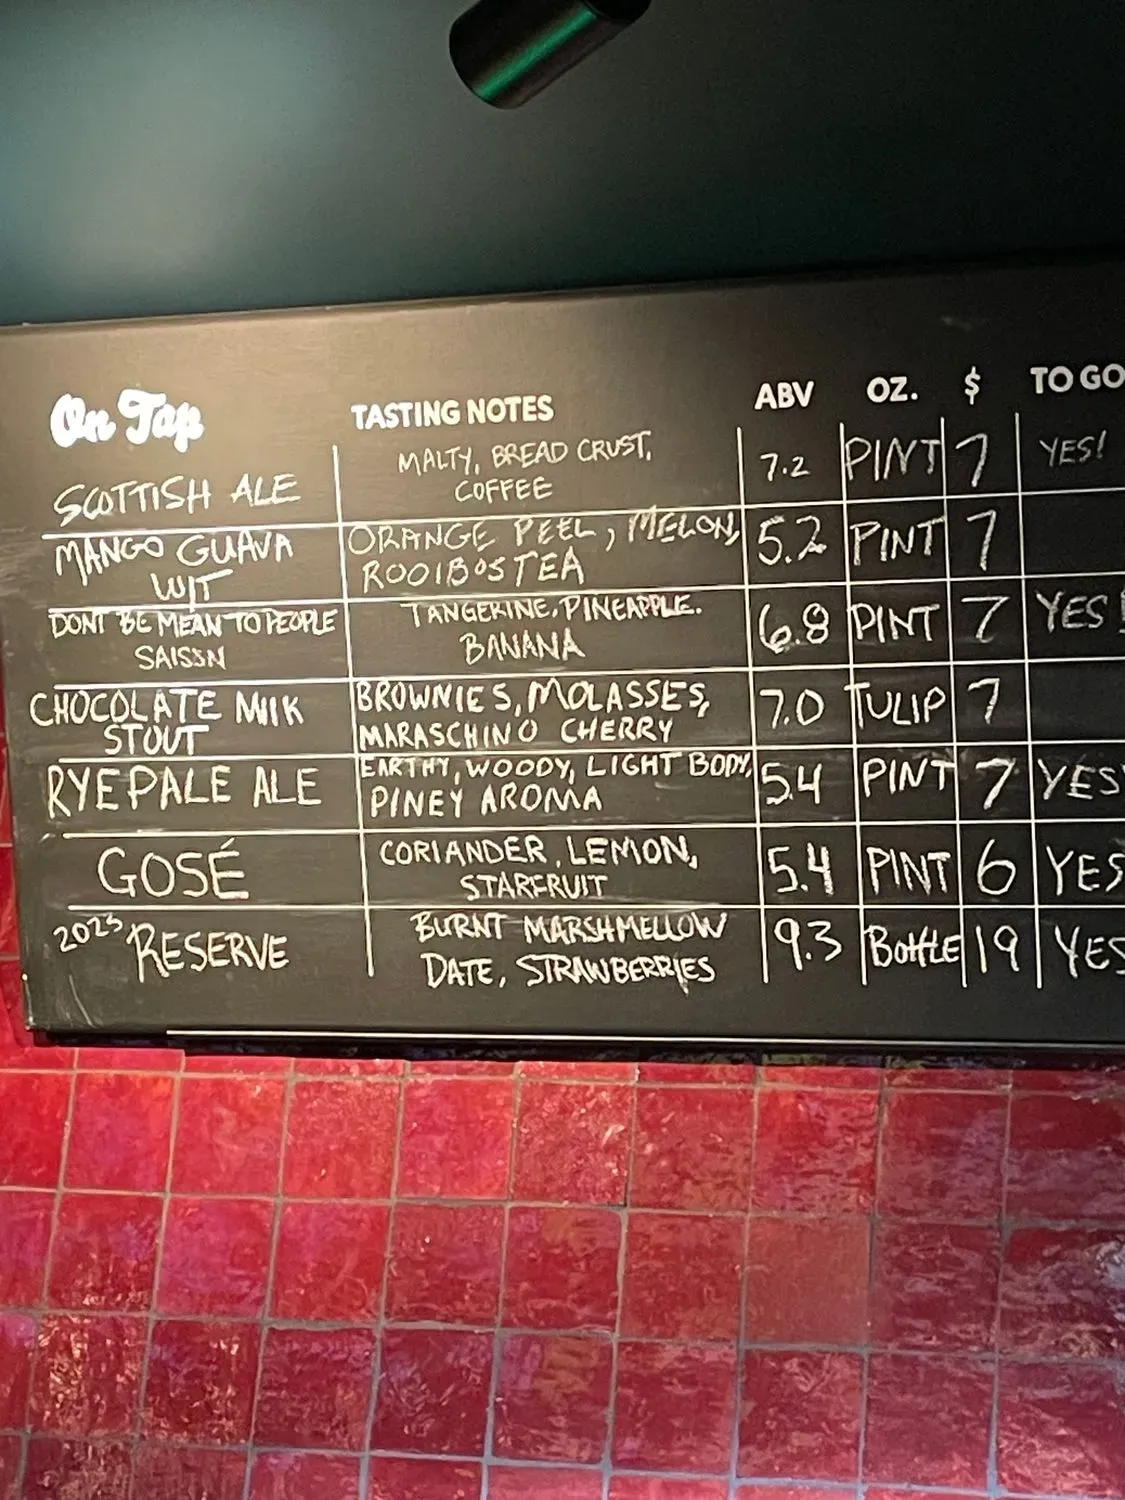 On Tap TASTING NOTES ABV OZ. $ TO GO
SCOTTISH ALE MALTY, BREAD CRUST, 7.2 PINT 7 YES!
COFFEE
MANGO GUAVA ORANGE PEEL, MELON, 5.2 PINT 7
WIT ROOIBOS TEA
DONT BE MEAN TO PEOPLE TANGERINE, PINEAPPLE. 6.8 PINT 7 YES!
SAISON BANANA
CHOCOLATE MILK BROWNIES, MOLASSES, 7.0 TULIP 7
STOUT MARASCHINO CHERRY
RYE PALE ALE EARTHY, WOODY, LIGHT BODY, 5.4 PINT 7 YES!
PINEY AROMA
GOSÉ CORIANDER, LEMON, 5.4 PINT 6 YES
STARFRUIT
2023 RESERVE BURNT MARSHMELLOW 9.3 Bottle 19 YES
DATE, STRAWBERRIES